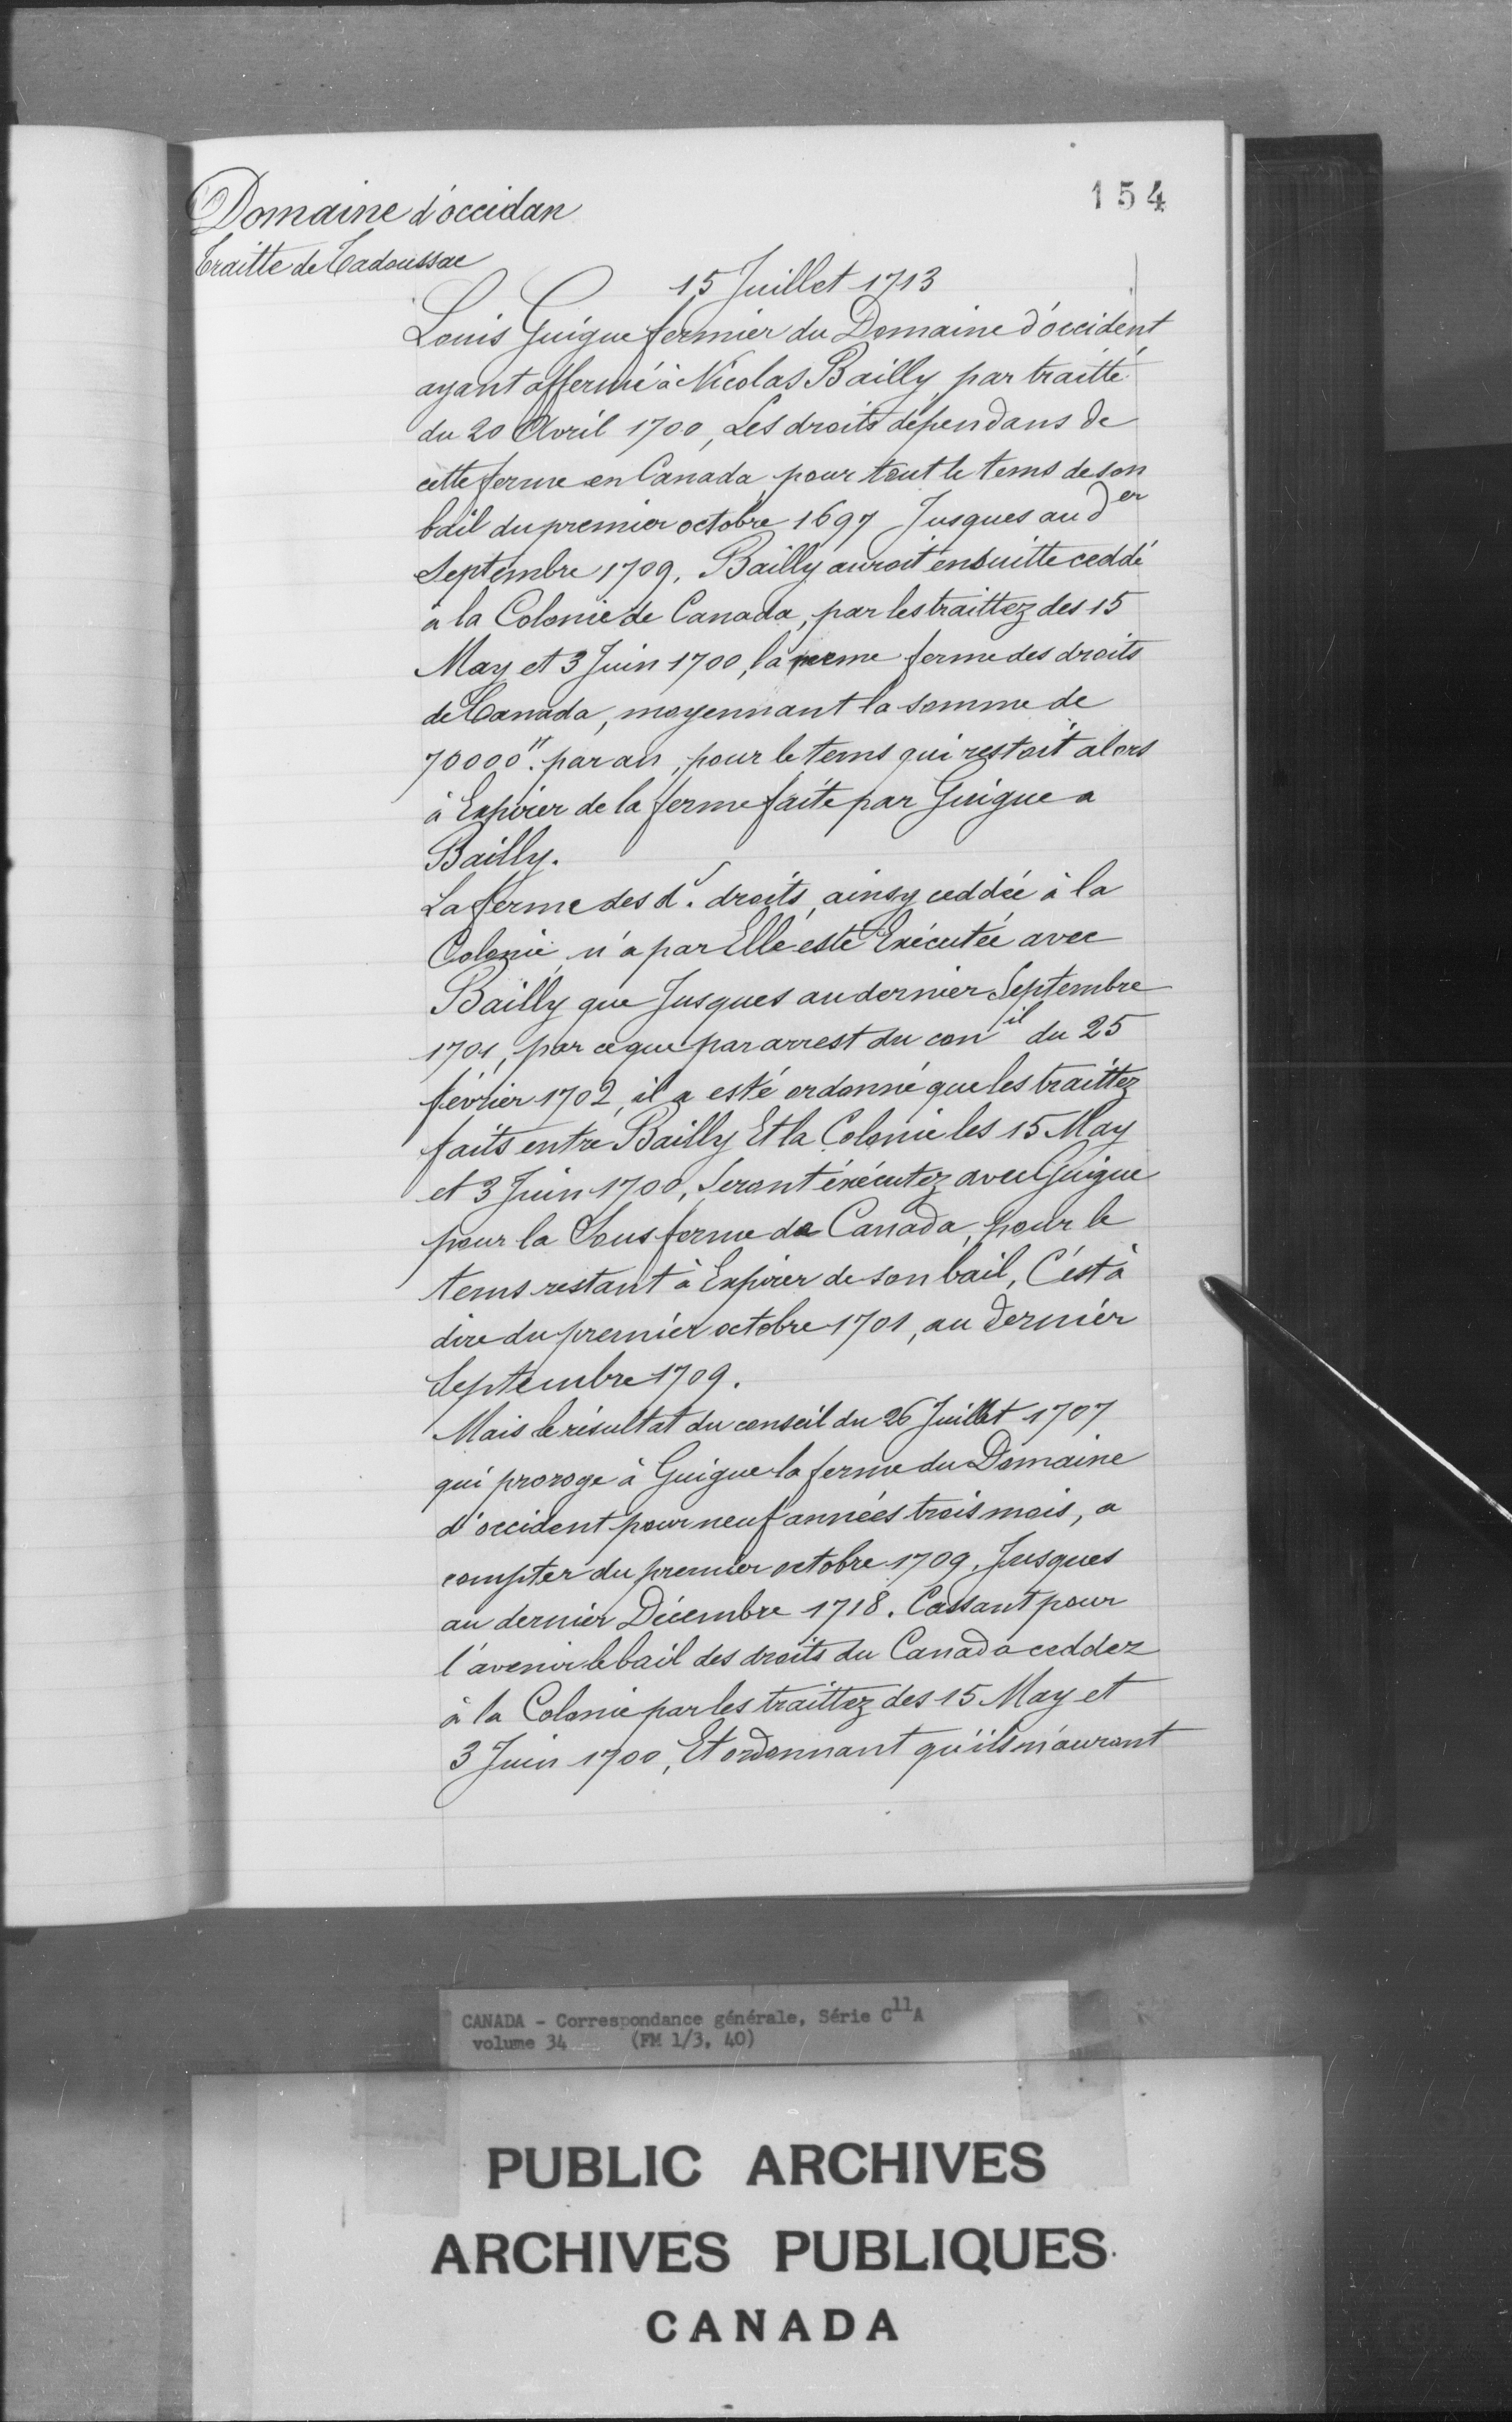 154
Domaine d'occidan
Traitte de Tadoussac
15 Juillet 1713
Louis Guigue fermier du Domaine d'occident
ayant affermé à Nicolas Bailly par traitté
du 20 Avril 1700, Les droits dépendans de
cette ferme en Canada, pour tout le tems de son
bail du premier octobre 1697 Jusques au der
Septembre 1709, Bailly auroit ensuitte ceddé
à la Colonie de Canada, par les traittez des 15
May et 3 Juin 1700, la meme ferme des droits
de Canada, moyennant la somme de
70000". par an, pour le tems qui restoit alors
à Expirer de la ferme faite par Guigue a
Bailly.
La ferme des d.s droits, ainsy ceddée à la
Colonie, n'a par Elle esté Exécutée avec
Bailly que Jusques au dernier Septembre
1701, par ce que par arrest du con.il du 25
février 1702, il a esté ordonné que les traittez
faits entre Bailly Et la Colonie les 15 May
et 3 Juin 1700, Seront éxécutez avec Guigue
pour la Sous ferme de Canada, pour le
tems restant à Expirer de son bail, C'est à
dire du premier octobre 1701, au dernier
Septembre 1709.
Mais le résultat du conseil du 26 Juillet 1707
qui proroge à Guigue la ferme du Domaine
d'occident pour neuf années trois mois, a
compter du premier octobre 1709, Jusques
au dernier Décembre 1718. Cassant pour
l'avenir le bail des droits du Canada ceddez
à la Colonie par les traittez des 15 May et
3 Juin 1700, Et ordonnant qu'ils n'auront
CANADA - Correspondance générale, Série C11A
volume 34 (FM 1/3, 40)
PUBLIC ARCHIVES
ARCHIVES PUBLIQUES
CANADA